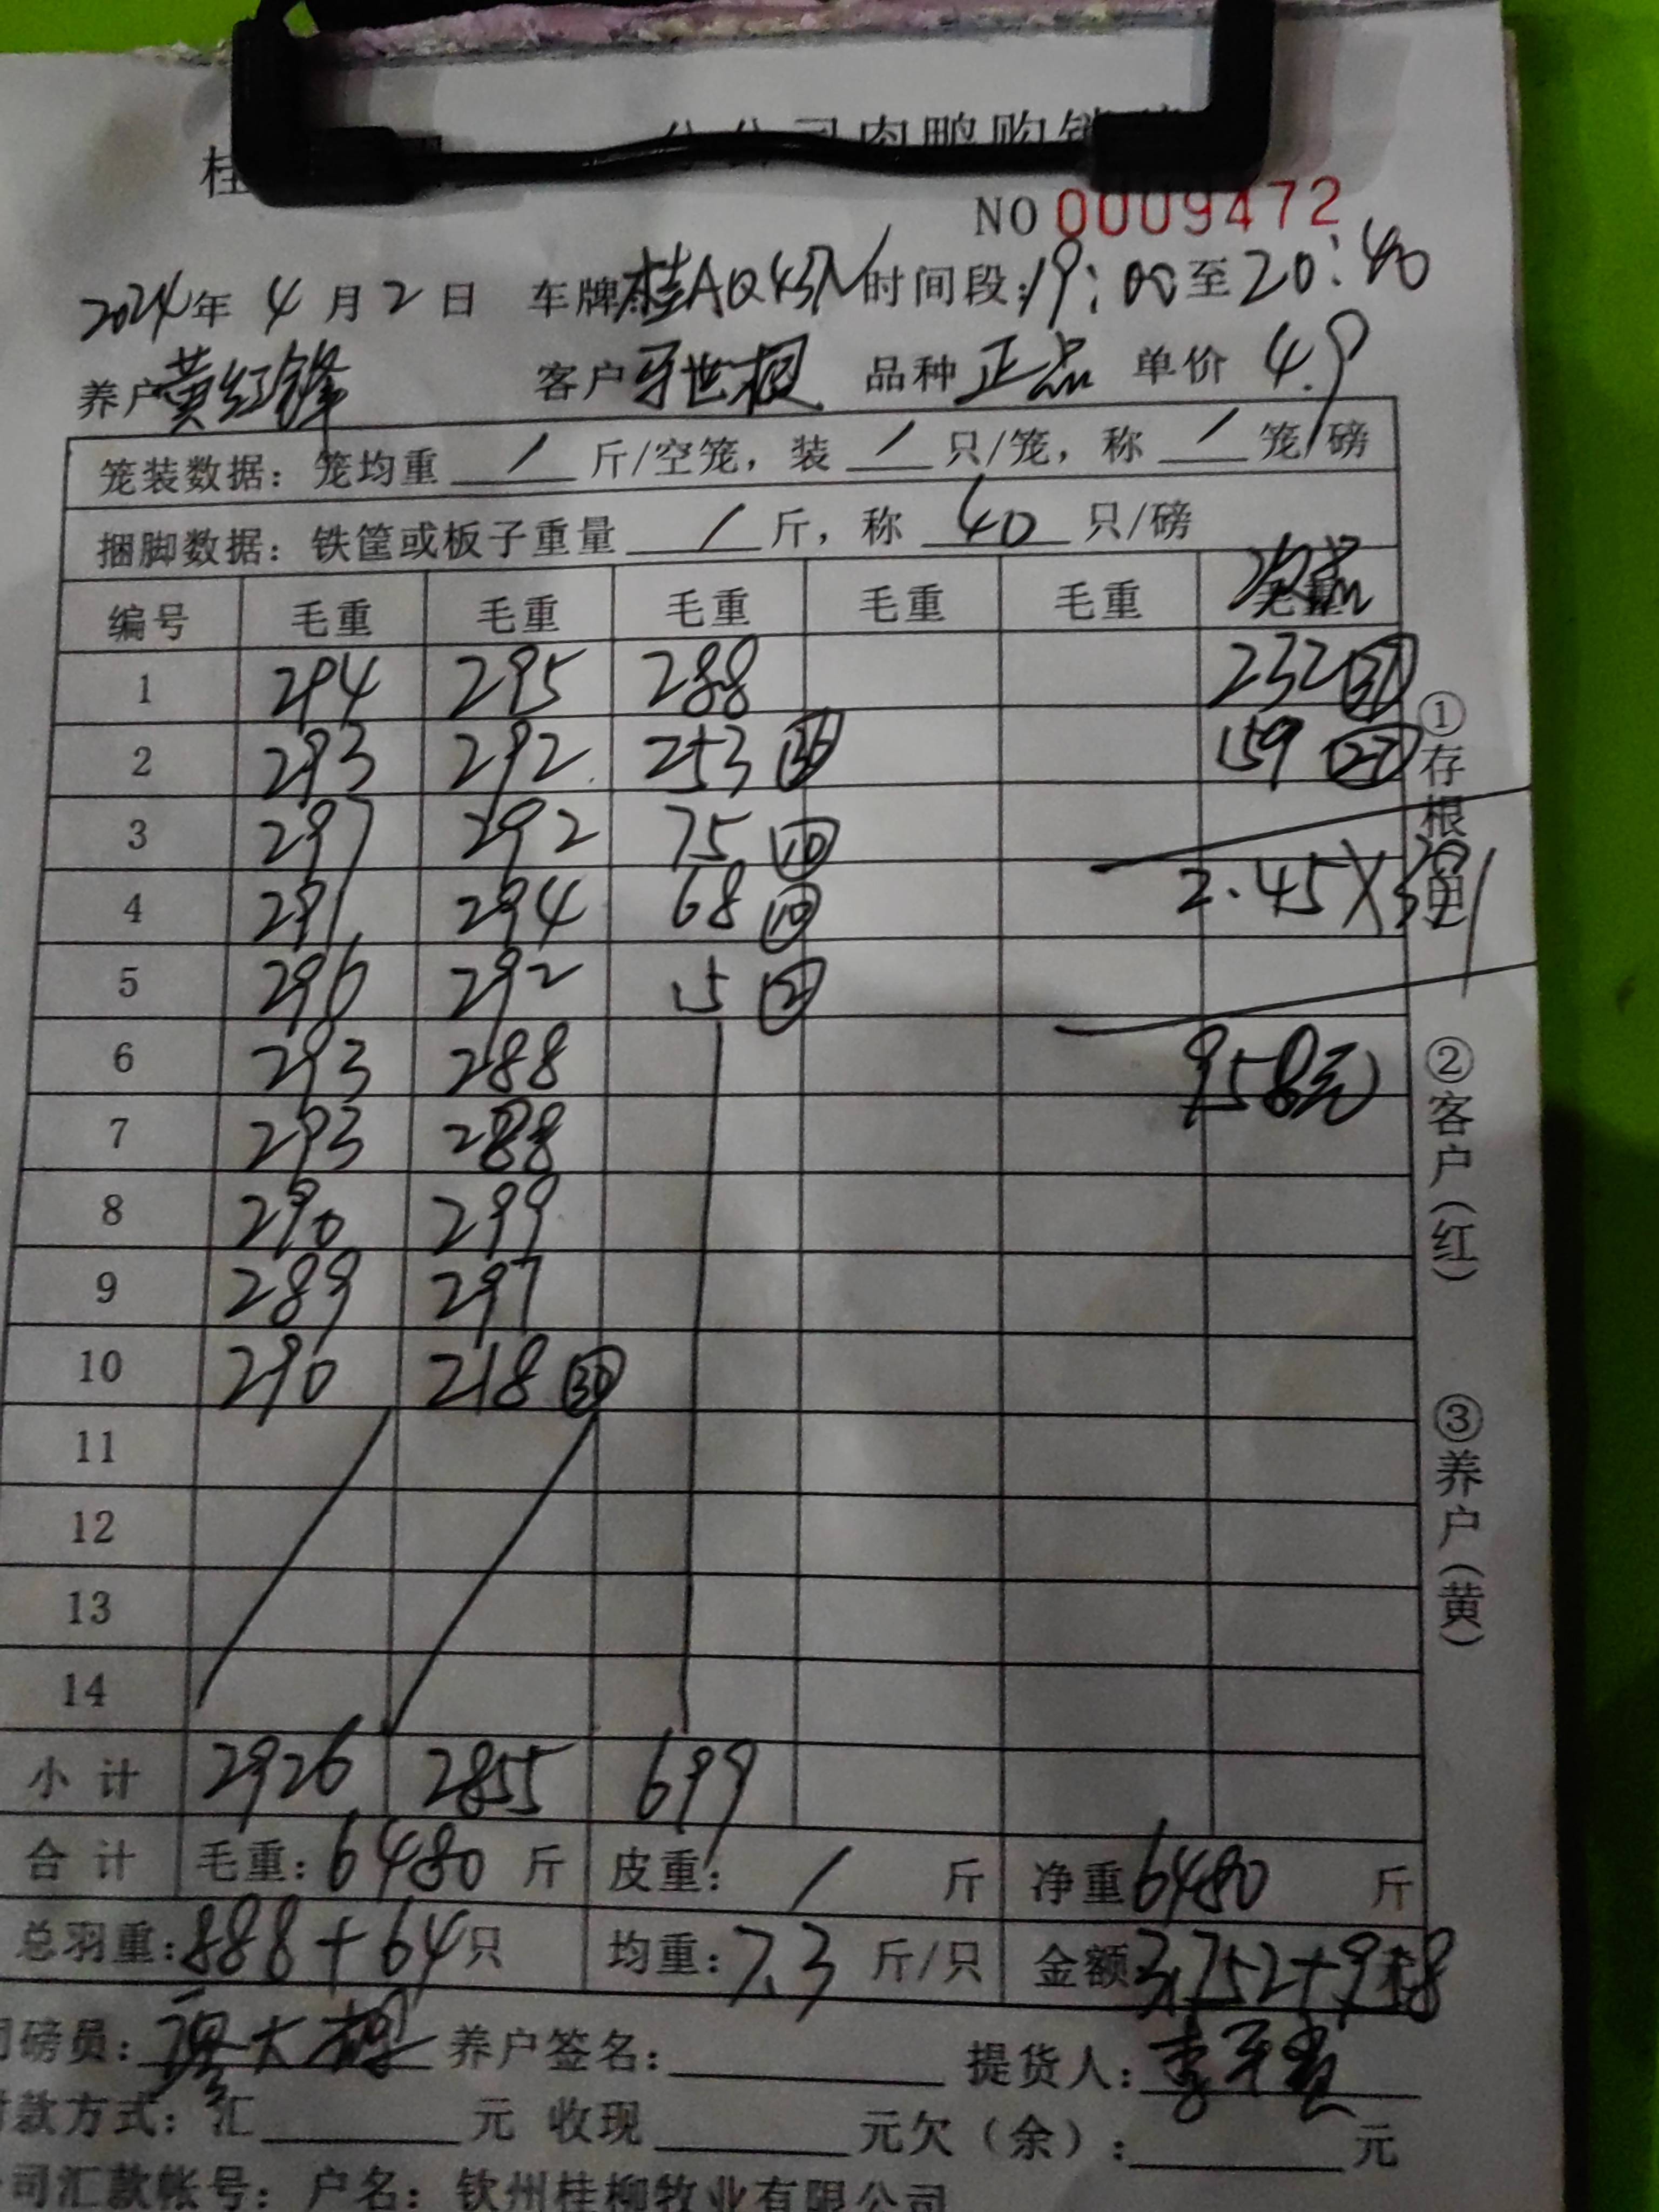 公司肉鸭购销
桂
NO 0009472
2024年 4月2日 车牌桂A 时间段:19:00至20:40
养户黄红锋 客户牙世根 品种正品 单价4.9
笼装数据：笼均重 / 斤/空笼，装 / 只/笼，称 / 笼/磅
捆脚数据：铁筐或板子重量 / 斤，称 40 只/磅
编号 毛重 毛重 毛重 毛重 毛重 毛重 次品
1 294 295 288 232 ㊲
2 293 292 253 ㊱ 159 ㉗
3 297 292 75 ⑩
4 291 294 68 ⑩ 2.45×391
5 296 292 15 ②
6 293 288 958元
7 293 288
8 290 299
9 289 297
10 290 218 ㉚
11
12
13
14
小计 2926 2855 699
合计 毛重：6480 斤 皮重： / 斤 净重6480 斤
总羽重：888+64只 均重：7.3 斤/只 金额 31752+958
磅员： 养户签名： 提货人：
款方式：汇 元 收现 元欠（余）： 元
司汇款帐号：户名：钦州桂柳牧业有限公司
①存根 ②客户（红） ③养户（黄）